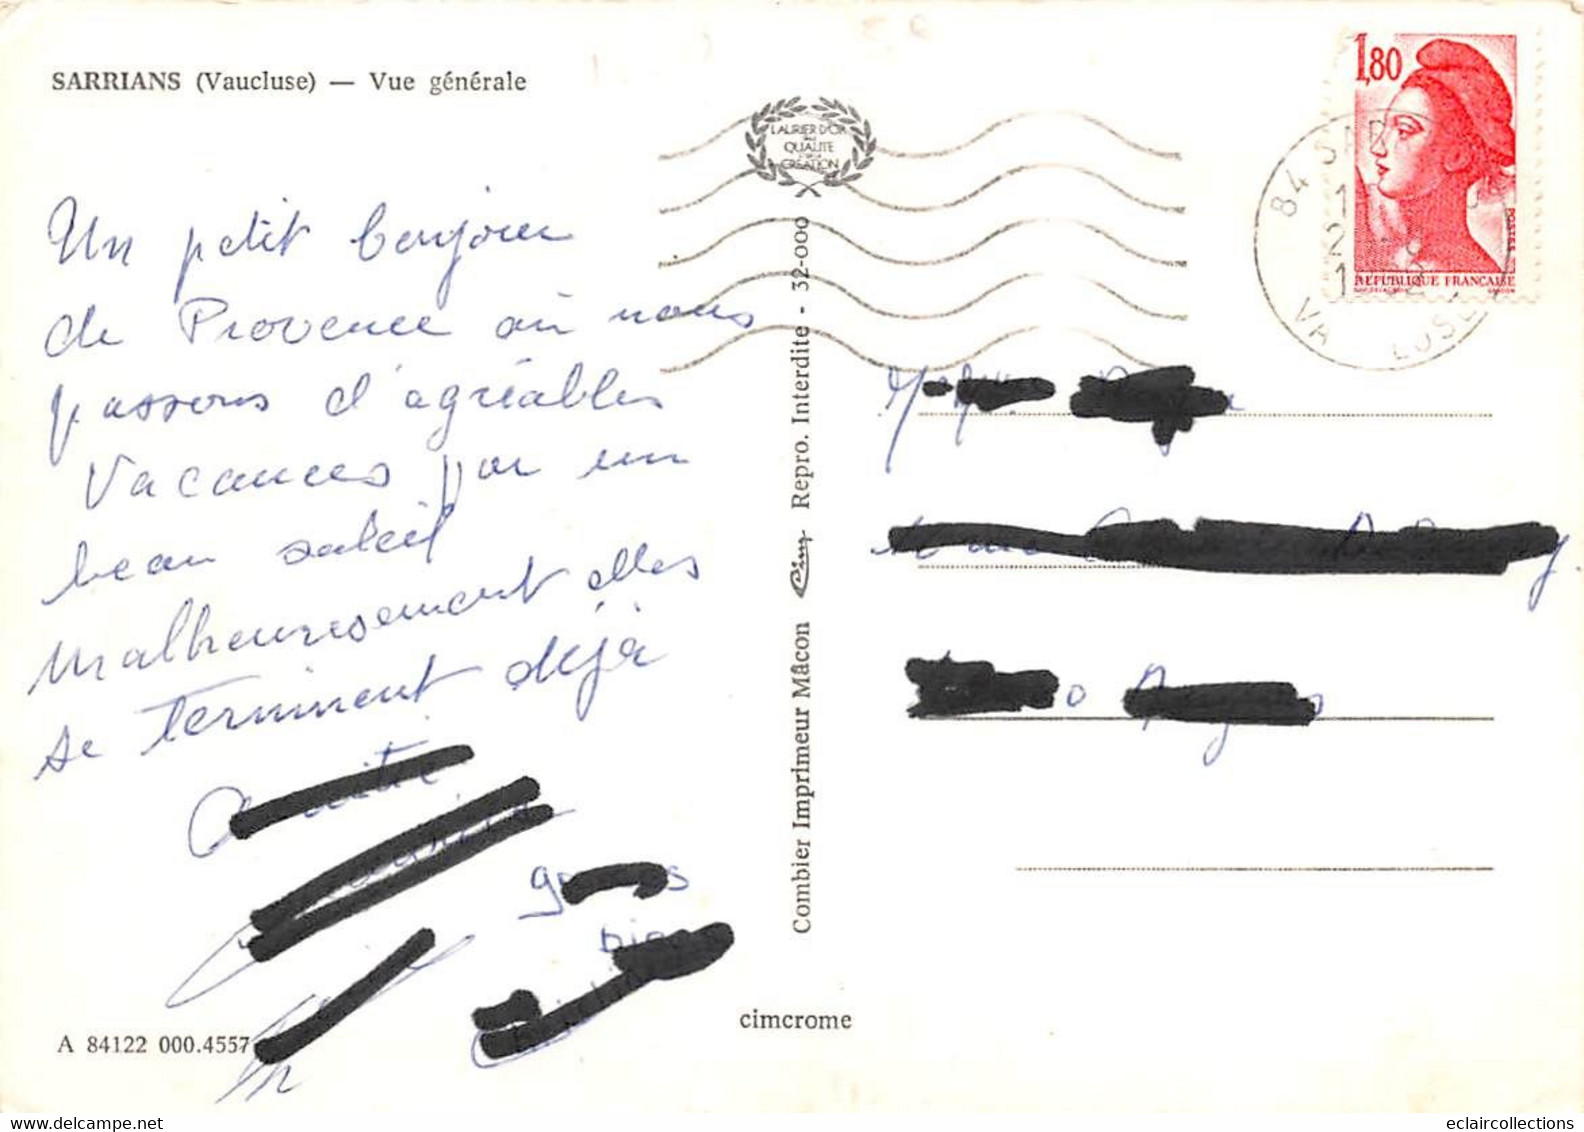 SARRIANS (Vaucluse) — Vue générale
Un petit bonjour
de Provence où nous
passons d'agréables
Vacances par un
beau soleil
Malheureusement elles
se terminent déjà
A 84122 000.4557
LAURIER D'OR
QUALITE
CREATION
Combier Imprimeur Mâcon
Cim
Repro. Interdite - 32-000
cimcrome
1,80
POSTES
REPUBLIQUE FRANCAISE
84 SAR
VA LUSE
eclaircollections